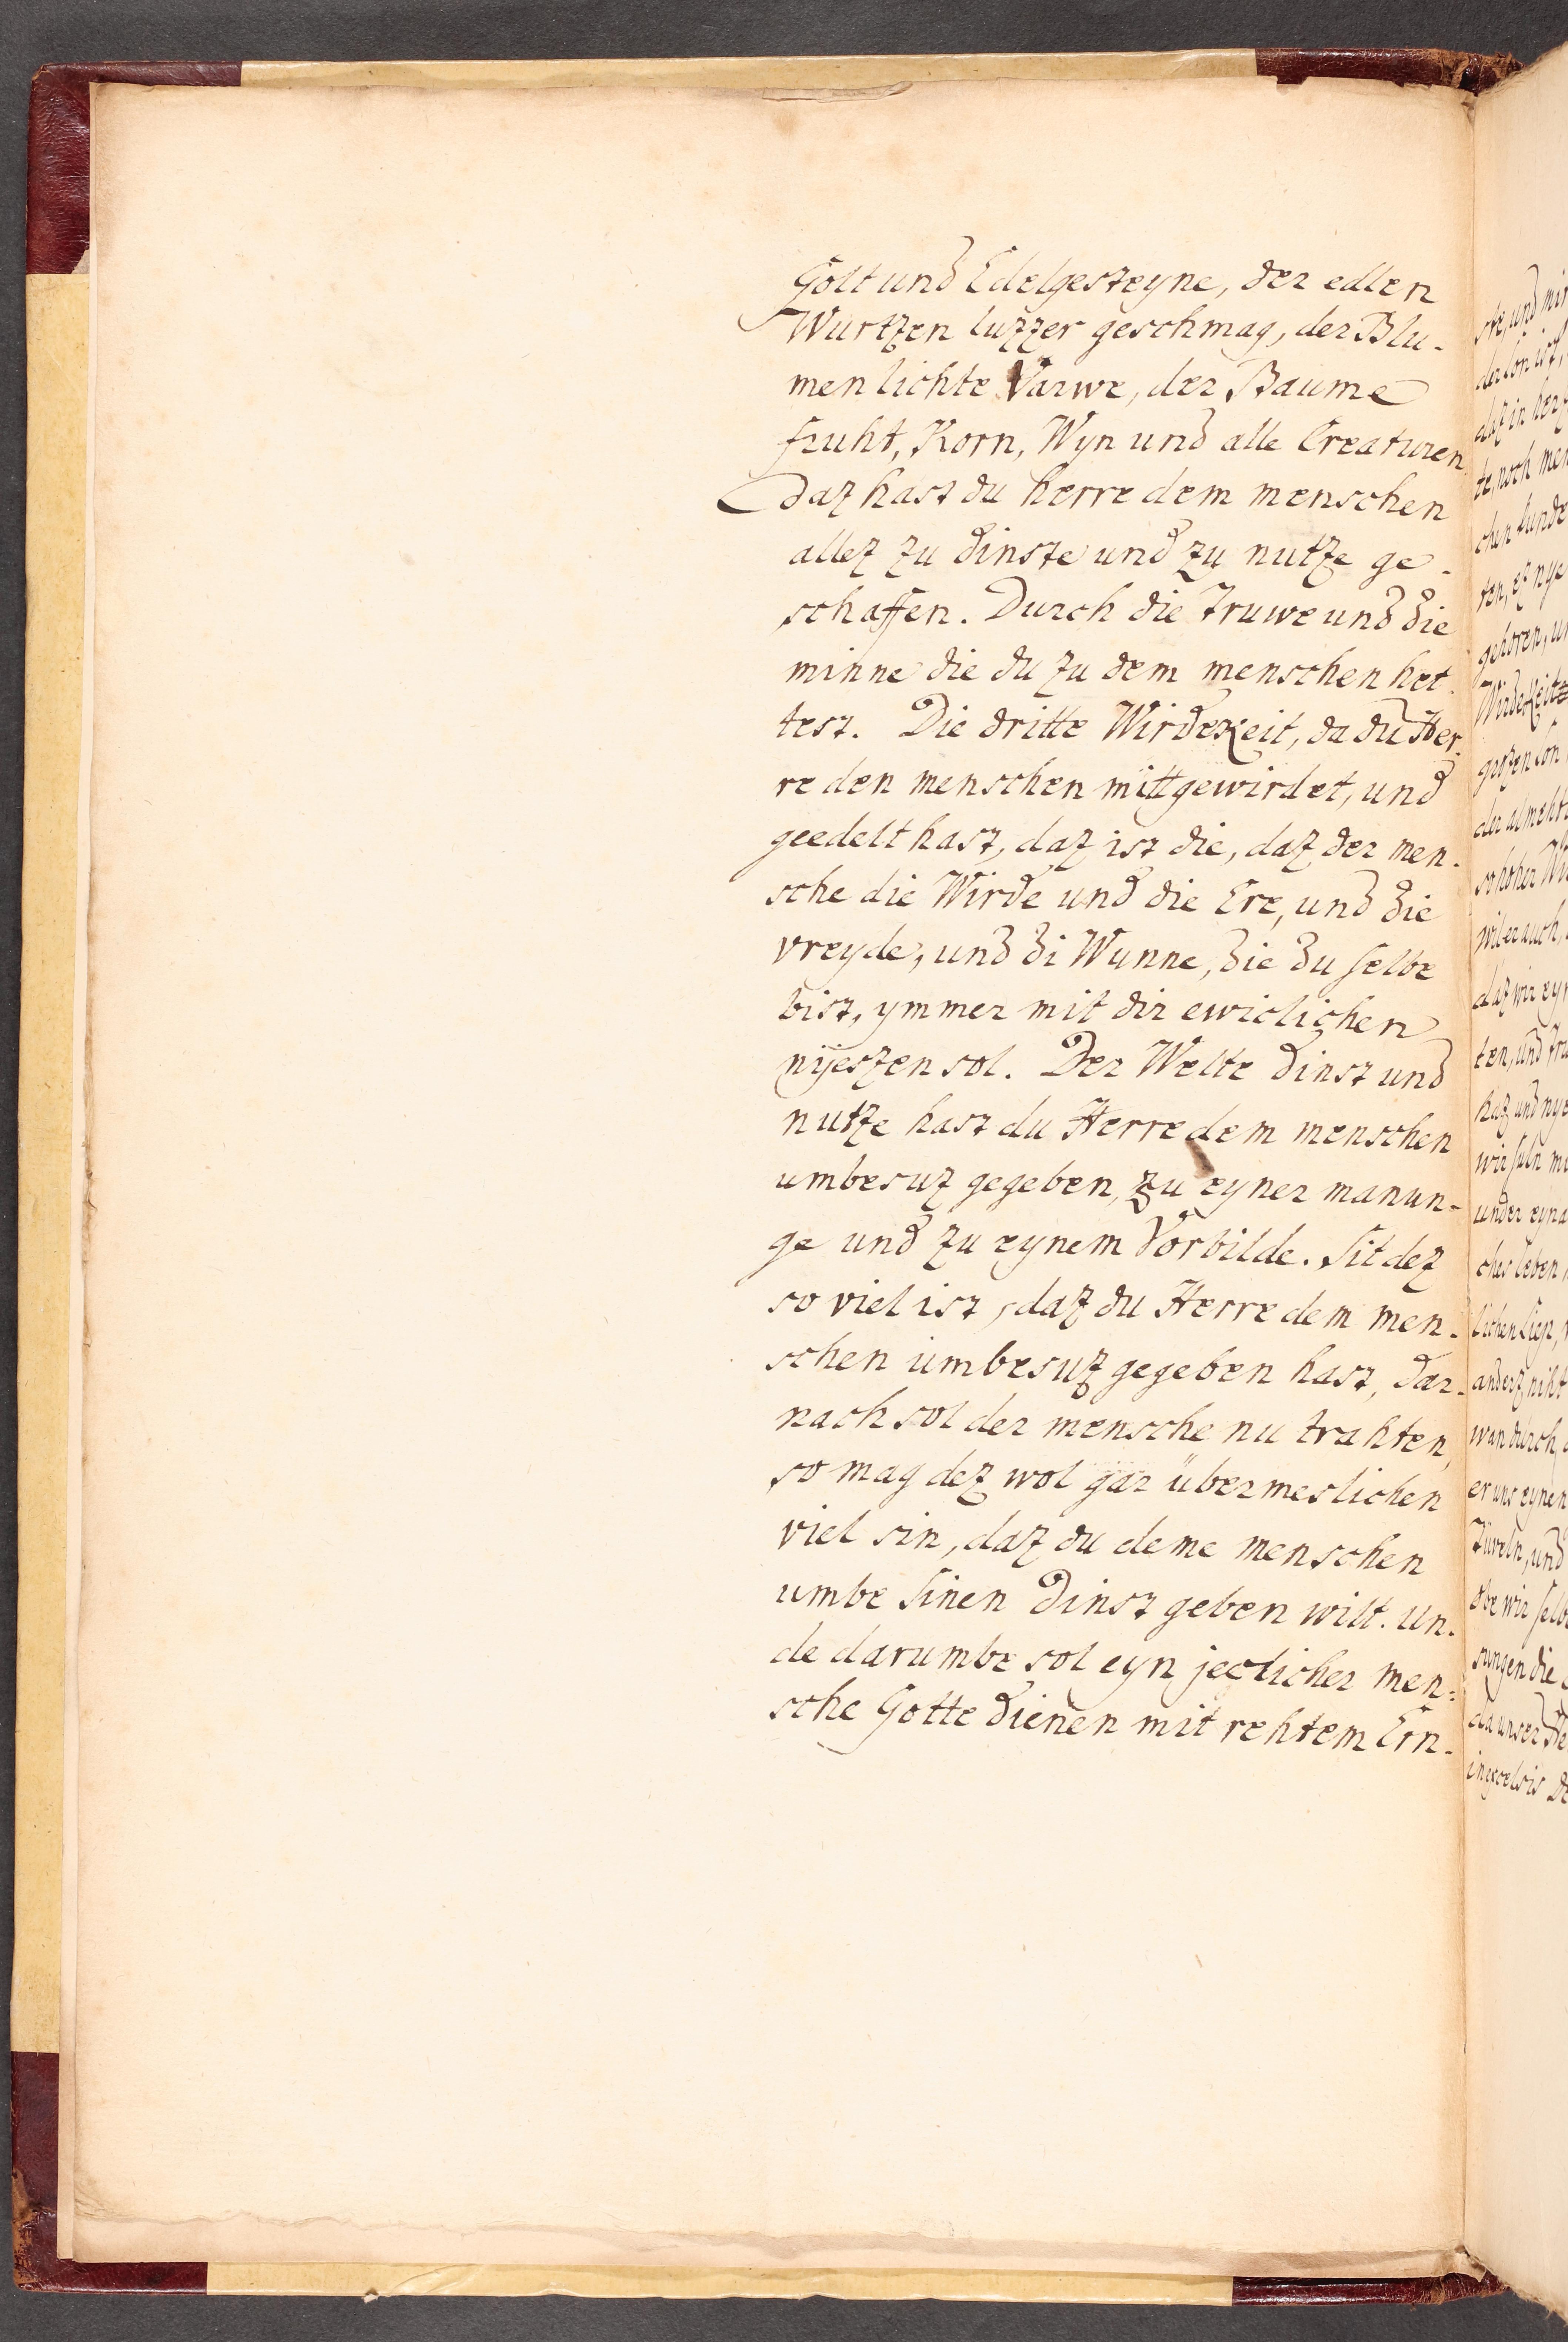 Golt und Edelgesteyne, der edlen
Wurtzen luzzer geschmag, der Blu-
men lichte Varwe, der Baume
fruht, Korn, Wyn und alle Creaturen
Daz hast du herre dem menschen
allez zu dinste und zu nutze ge-
schaffen. Durch die Truwe und die
minne die du zu dem menschen het-
test. Die dritte Wirdekeit, da du Her-
re den menschen mitt gewirdet, und
geedelt hast, daz ist die, daz der men-
sche die Wirde und die Ere, und die
vreyde, und di Wunne, die du selbe
bist, ymmer mit dir ewiclichen
nyeszen sol. Der Welte dinst und
nutze hast du Herre dem menschen
umbesuz gegeben, zu eyner manun-
ge und zu eynem Vorbilde. Sit dez
so viel ist, daz du Herre dem men-
schen umbesuz gegeben hast, Dar-
nach sol der mensche nu trahten,
so mag dez wol gar übermeslichen
viel sin, daz du deme menschen
umbe Sinen Dinst geben wilt. Un-
de darumbe sol eyn jeclicher men-
sche Gotte dienen mit rehtem Ern-